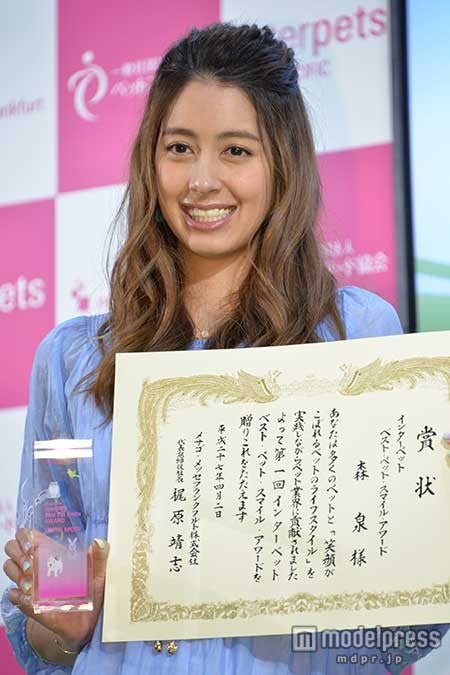 erpets
一般社団
ペット
nkfurt
pets
賞状
インターペット
ベスト ペット スマイル アワード
森 泉 様
あなたは多くのペットと「笑顔が
こぼれるペットのライフスタイル」を
実践しながらペット業界に貢献されました
よって第一回インターペット
ベスト ペット スマイル アワードを
贈りこれをたたえます
平成二十七年四月二日
メサゴ・メッセフランクフルト株式会社
代表取締役社長 梶原靖志
AWARD
modelpress
mdpr.jp